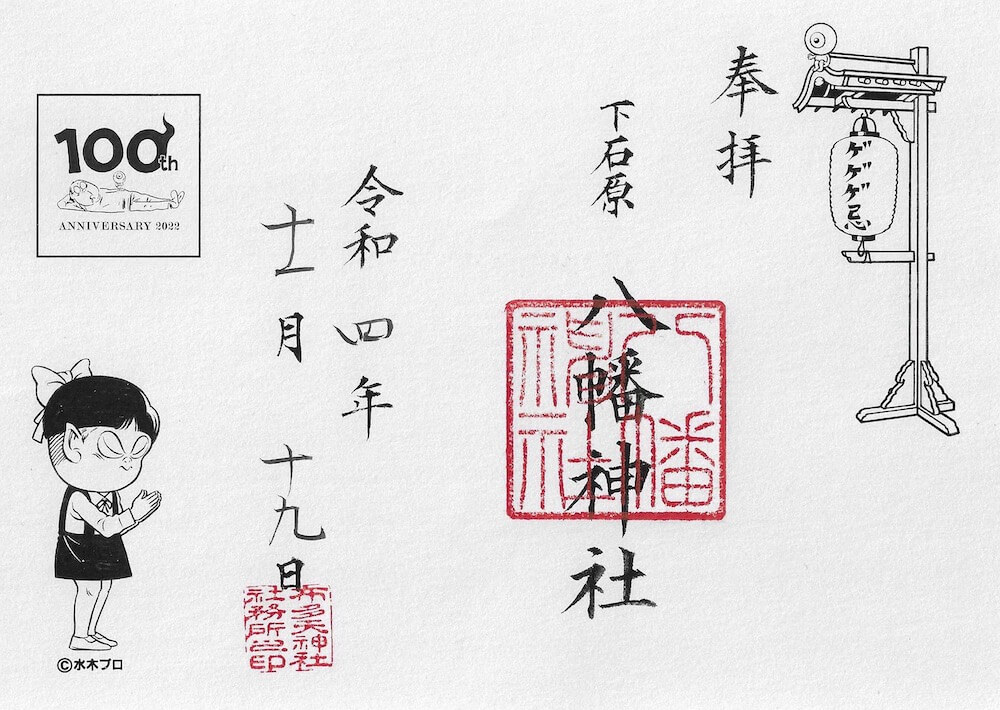 奉拝
ゲゲゲ忌
下石原
八幡神社
八幡神社
令和四年
十一月十九日
布多天神社
社務所之印
100th
ANNIVERSARY 2022
©水木プロ